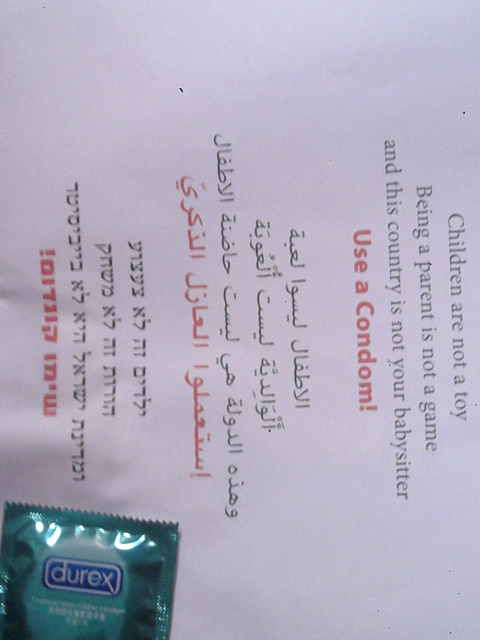 Children are not a toy
Being a parent is not a game
and this country is not your babysitter
Use a Condom!
الاطفال ليسوا لعبة
اَلْوَالِدِيَّة ليست أُلْعُوبَة
وهذه الدولة هي ليست حاضنة الاطفال
إستعملوا العازل الذكريَ
ילדים זה לא צעצוע
הורות זה לא משחק
ומדינת ישראל היא לא בייביסיטר
שימו קונדום!
durex